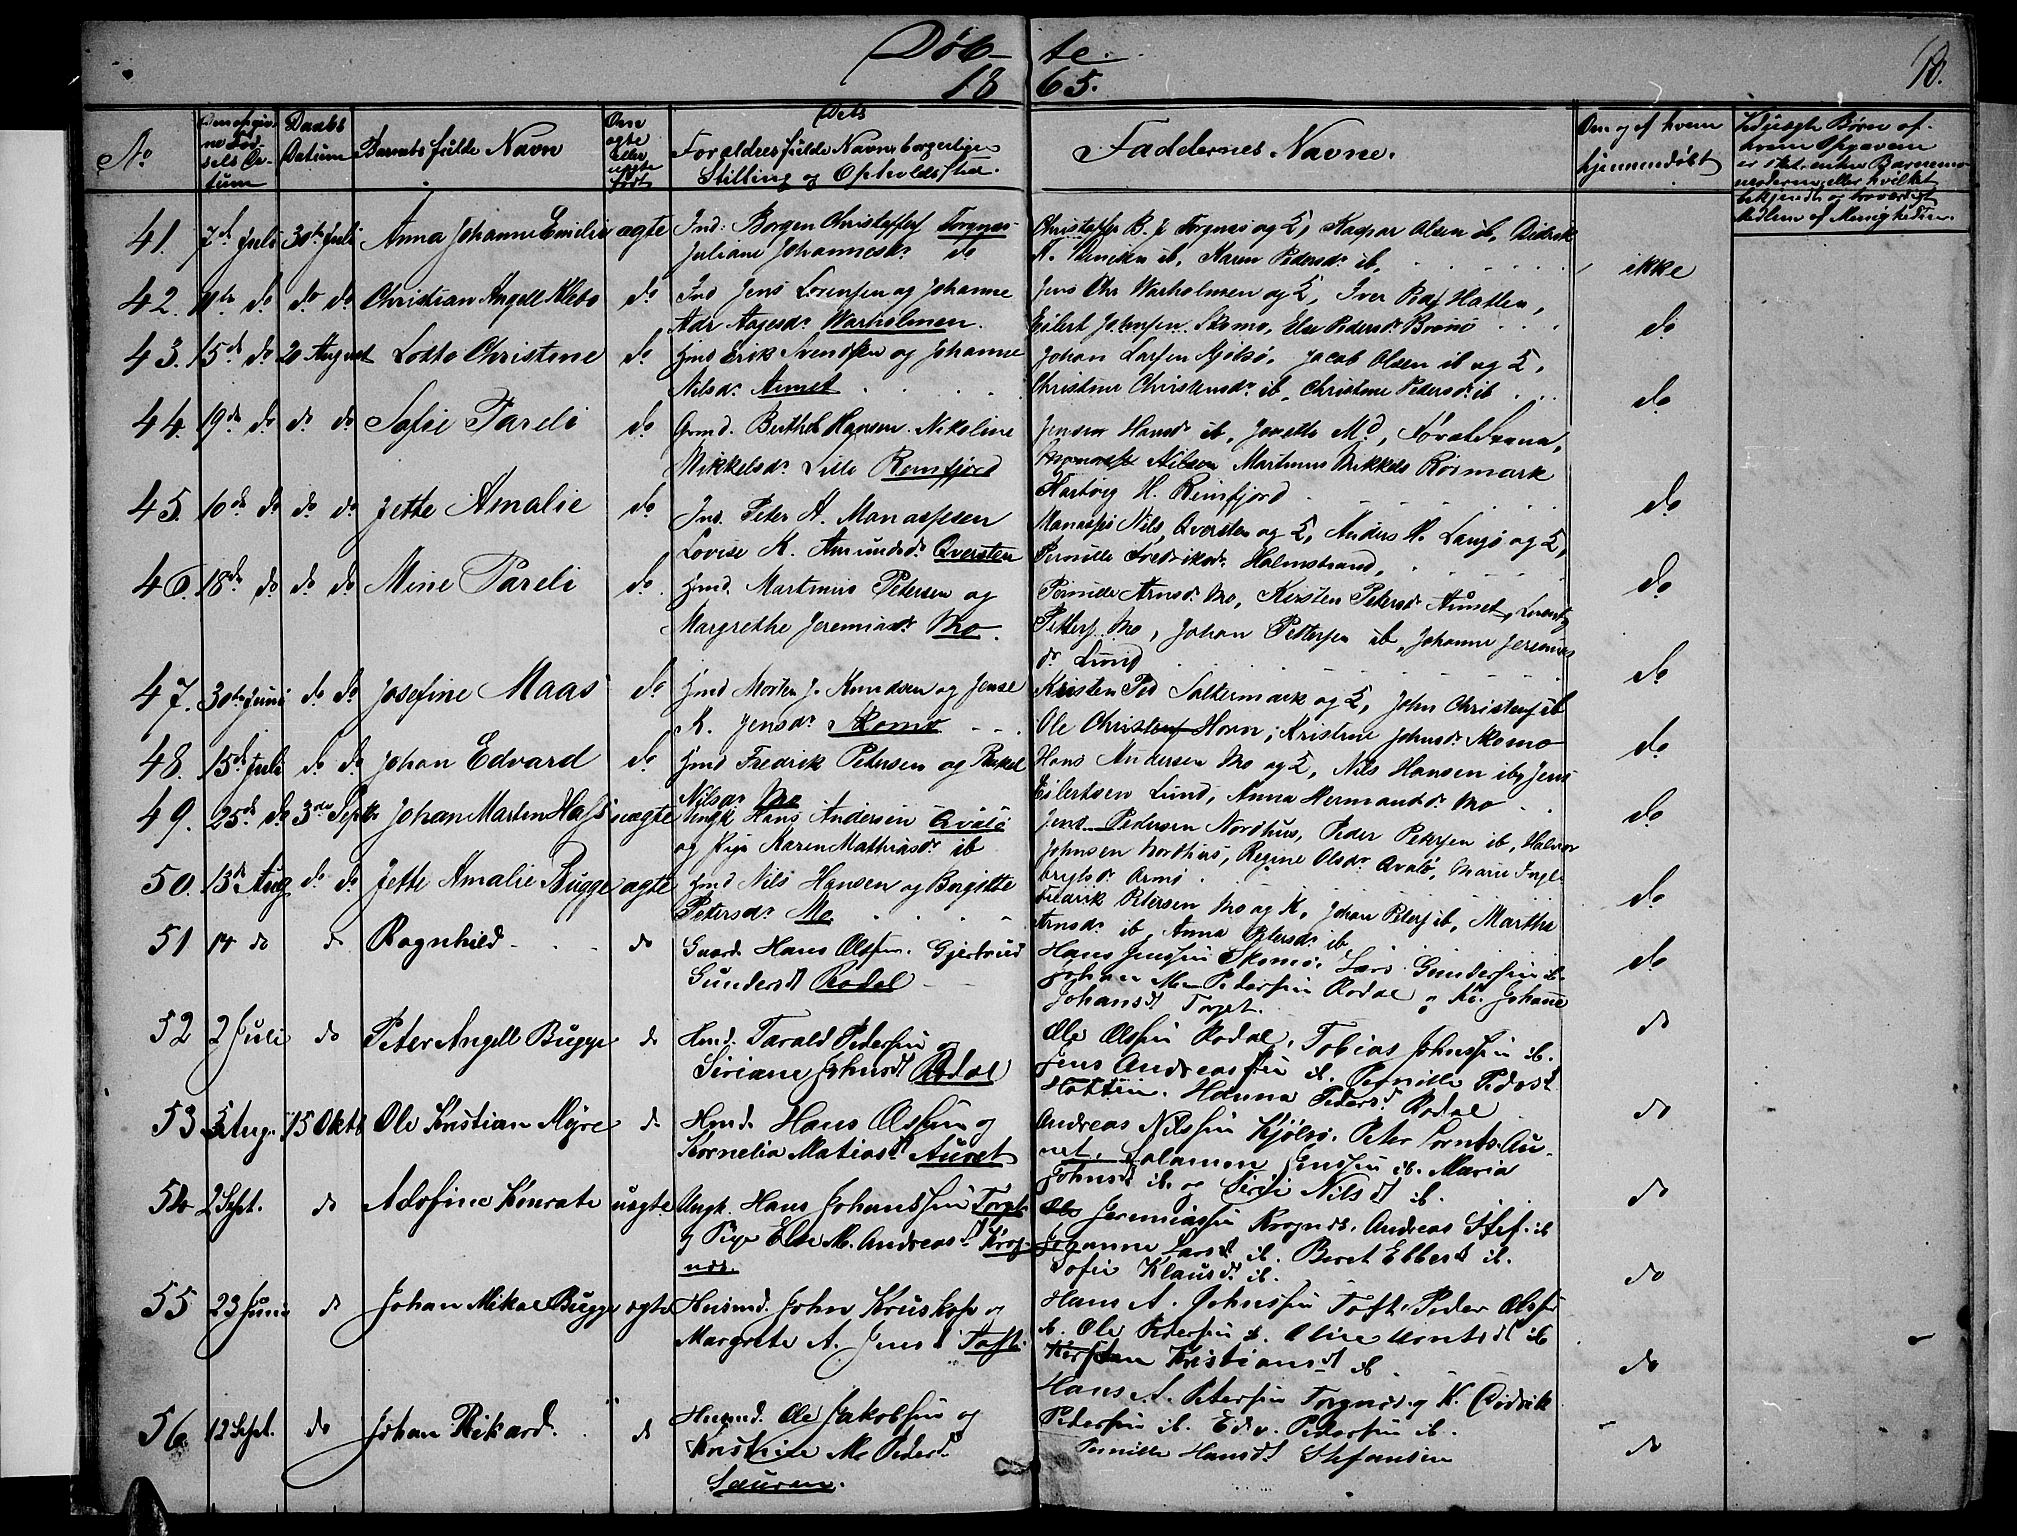 Døb- te.
1865.
10.
No
Den opgivne Fødsels Datum
Daabs Datum
Barnets fulde Navn
Om ægte eller uægte født
Dets Forældres fulde Navne borgerlige Stilling og Opholdssted.
Faddernes Navne.
Om og af hvem hjemmedøbt
41. 7de Juli 30te Juli Anna Johanne Emilie ægte Ind: Borgen Christoffers Torgnes
Juliane Johannesdr do
Christoffer B. J. Torgnes og K, Kaspar Olsen ib, Didrik
Karen Pedersdr ib.
ikke
42. 11te do do do Christian Angell Klebo do Ind Jens Lorensen og Johanne
Adr Aagesdr Warholmen.
Jens Chr Warholmen og K, Iver Hatten,
Eilert Johnsen Skomo, Else Pedersdr
do
43. 15de do 20 August Lotto Christine do Hmd Erik Svendsen og Johanne
Nilsdr Aunet
Johan Larsen Kjølsø, Jacob Olsen ib og K,
Christine Christensdr ib, Christine Petersdr ib
do
44. 19de do do do Sofie Pareli do Grmd. Berthel Hansen Nikoline
Mikkelsdr Lille Remfjord
Jensen Hansdr ib, Jonette Md,
Nilsen Martinus Mikkels Rosmark
Hartvig H. Reinfjord
do
45. 10de do do do Jette Amalie do Ind. Peter A. Manassesen
Lovise K. Amundsdr Qversten
Manasses Nils, Qversten og K, Anders Langø og K,
Pernille Fredriksdr Holmstrand,
do
46. 18de do do do Mine Pareli do Hmd. Martinus Petersen og
Margrethe Jeremiasdr Mo.
Pernille Arnsdr Mo, Kirsten Petersdr Aunet, Lorents
Peters Mo, Johan Pettersen ib, Johanne Jeremias
dr Lund
do
47. 30te Juni do do Josefine Maas do Hmd Morten J. Knudsen og Jense
K. Jensdr Skomo
Kristen Ped Saltermark og K, John Christens ib
Ole Christens Horn, Kristine Johnsdr Skomo
do
48. 15de Juli do do Johan Edvard do Hmd Fredrik Petersen og Rakel
Nilsdr Mo
Hans Andersen Mo og K, Nils Hansen ib, Jens
Eilertsen Lund, Anna Hermansdr Mo
do
49. 25de do 3die Sept Johan Marten Hass uægte Ungk Hans Andersen Qvalø
og Pige Karen Mathiasdr ib
Jens Pedersen Nordhus, Peder Petersen ib, Halvor
Johnsen Nordhus, Regine Olsdr Qvalø, Marie Ingebrigtsdr Ormø
do
50. 15de Aug do do Jette Amalie Bugge ægte Hmd Nils Hansen og Birgitte
Petersdr Mo
Fredrik Petersen Mo og K, Johan Peters ib, Martha
Arnsdr ib, Anna Petersdr ib
do
51 14 do do Ragnhild do Gaard. Hans Olssen. Gjertrud
Gundersdt Rodal
Hans Jenssen Skomo, Lars Gunderssen ib.
Johan M. Pederssen Rodal, Johane
Johansdt Torget.
do
52 2 Juli do Peter Angell Bugge do Husmd. Tarald Pederssen og
Siriane Johnsdt Rodal
Ole Olssen Rodal, Tobias Johnssen ib.
Jens Andreassen ib. Pernille Pedersdt
Hatten. Hanna Pedersdt Rodal
do
53 5 Aug. 15 Oktb Ole Kristian Myre do Husmd. Hans Olssen og
Kornelia Matiasdt Aunet
Andreas Nilssen Kjølsø. Peter Lornts. Aunet, Salamon Jenssen ib. Maria
Johnsdt ib. og Sirse Nilsdt ib.
do
54 2 Sept. do Adofine Konrate uægte Ungk. Hans Johanssen Torget
og Pige Else M. Andreasdt Krognes.
Ole Jeremiassen Krognes. Andreas Stef. ib
Johanne Larsdt ib. Beret Ebbersdt ib.
Sofie Klausdt ib.
do
55 23 Juni do Johan Mikal Bugge ægte Husmd. John Kruskop og
Margrete A. Jensdt Toft.
Hans A. Johnssen Toft. Peder Olssen
ib. Ole Pederssen ib. Oline Arntsdt ib
Kirsten Kristiansdt ib.
do
56 12 Sept. do Johan Rikard. do Husmd. Ole Jakobssen og
Kristine M. Pedersdt
Sauren.
Hans A. Peterssen Torgnes og K. Didrik
Pederssen ib. Edv. Pederssen ib.
Pernille Hansdt Stefansen
do